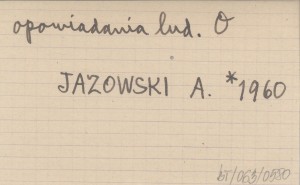 opowiadania lud. O
JAZOWSKI A. *1960
bT/063/0580